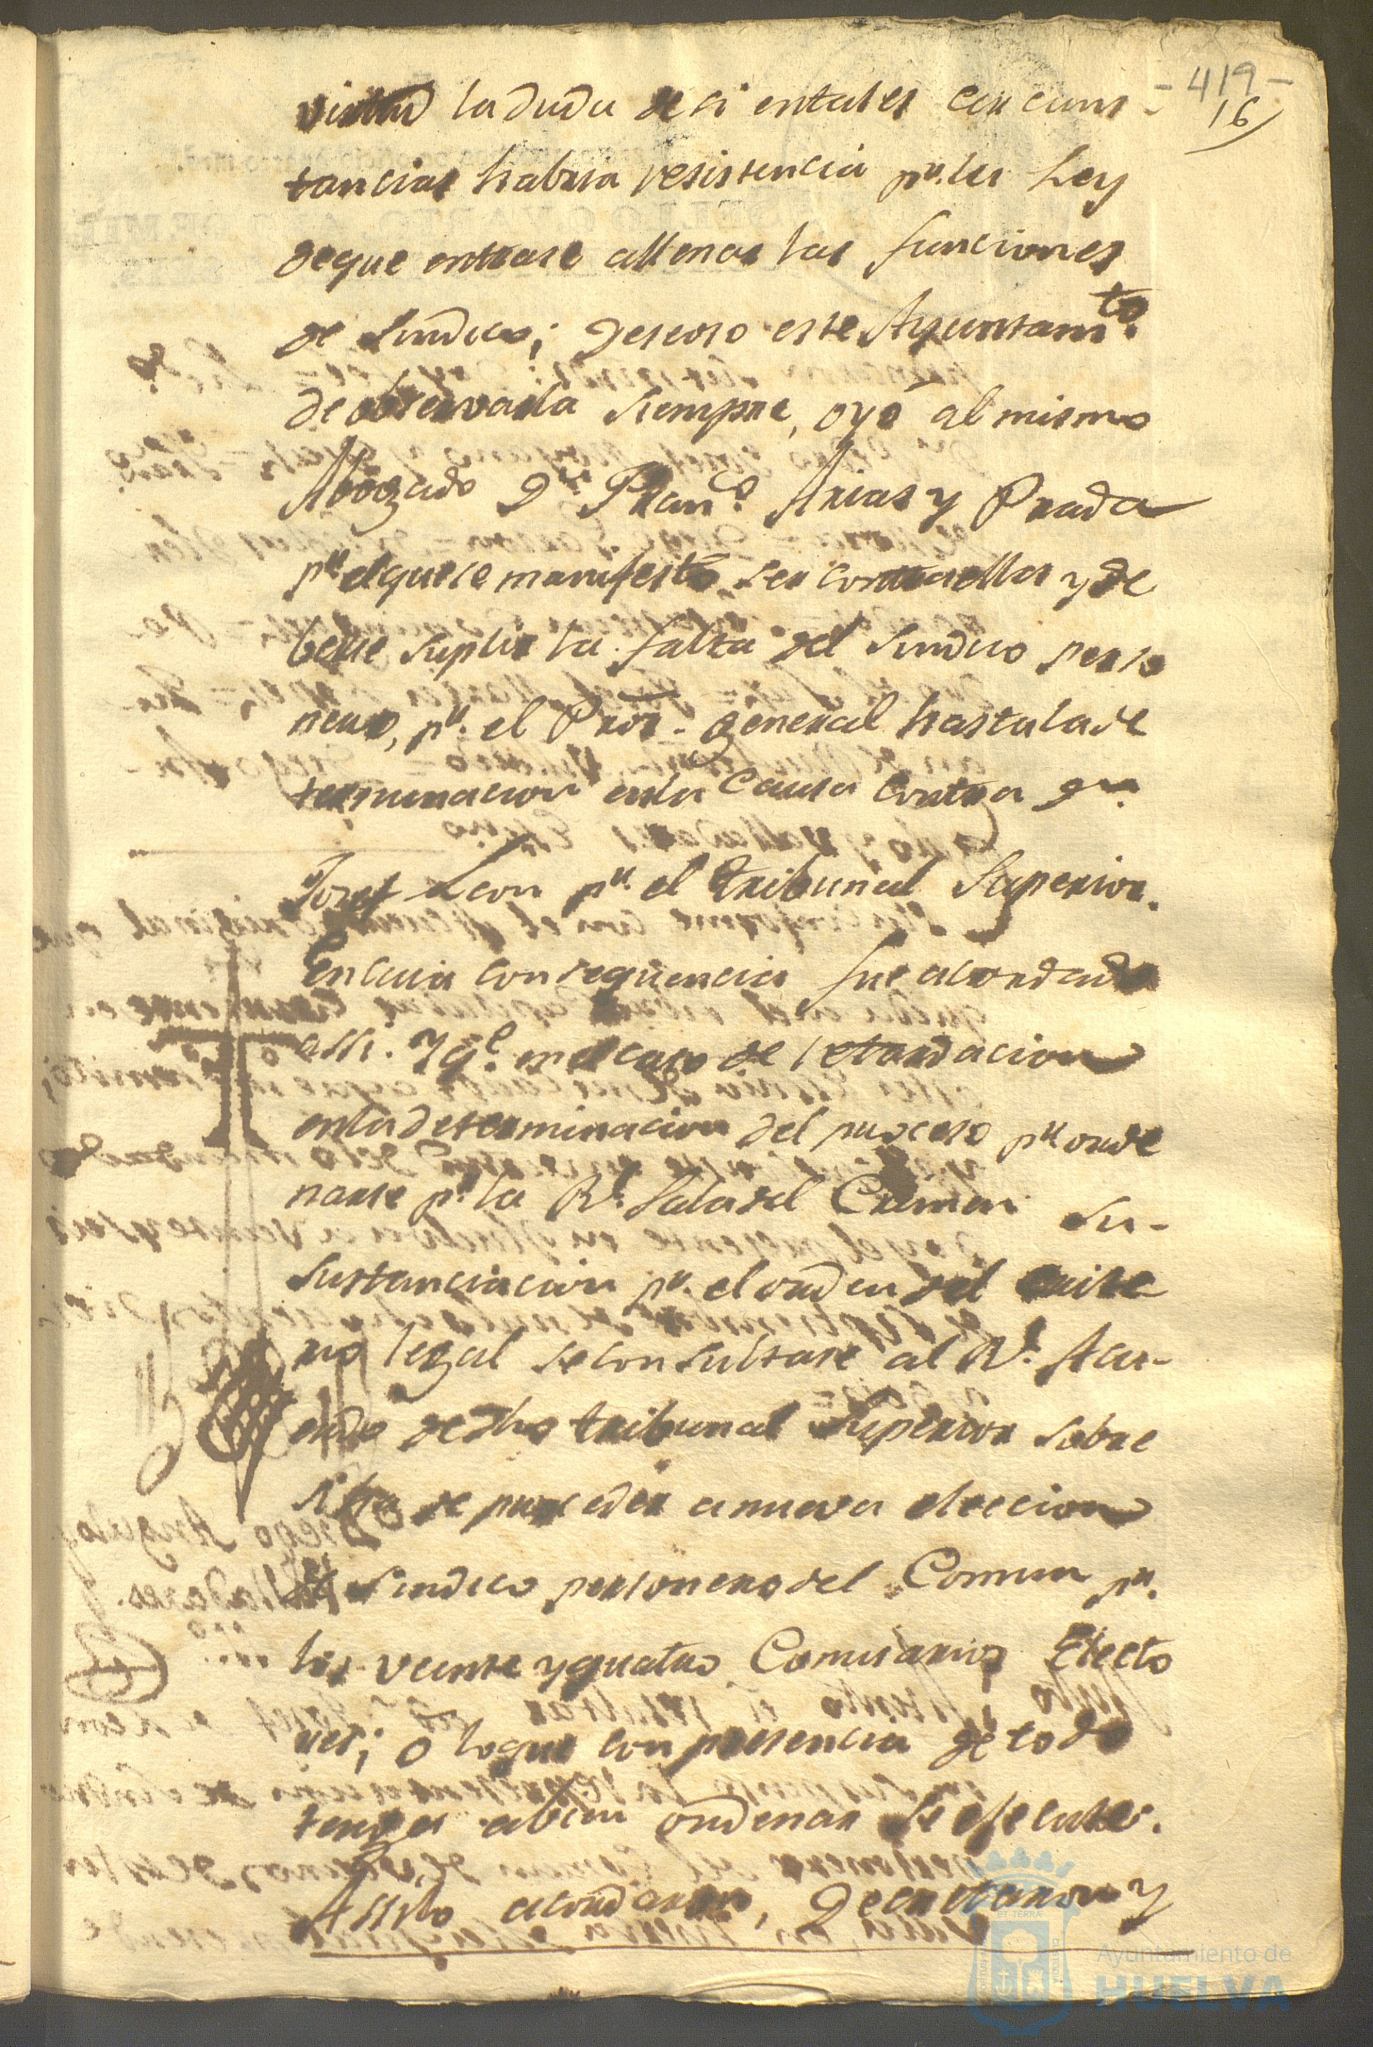 -419-
16
virtud la duda de si entales circuns-
tancias habria resistencia pr. la Ley
deque entrase allenar las funciones
de Sindico; deseoso este Ayuntamto.
de observarla siempre, oyó al mismo
Abogado Dn. Franco. Arias y Prada
pr. elquese manifestó ser contra ellas y de
berse suplir la falta del Sindico perso
nero, pr. el Pror. general hasta la de
terminacion enla causa contra Dn.
Josef Leon pr. el tribunal Superior.
En cuia consequencia fue acordado
assi. Yqe. en el caso de retardacion
enla determinacion del proceso pr. orde
narse pr. la Rl. Sala del Crimen su-
sustanciacion pr. el orden del
no legal se consultase al Rl. Acu-
erdo de dho tribunal Superior sobre
si ha de proceder a nueva eleccion
de Sindico personero del Comun pr.
los veinte yquatro Comisarios Electo
res; ó loque con presencia de todo
tenga abien ordenar se execute.
Assilo acordaron, Decretaron y
Ayuntamiento de
HUELVA